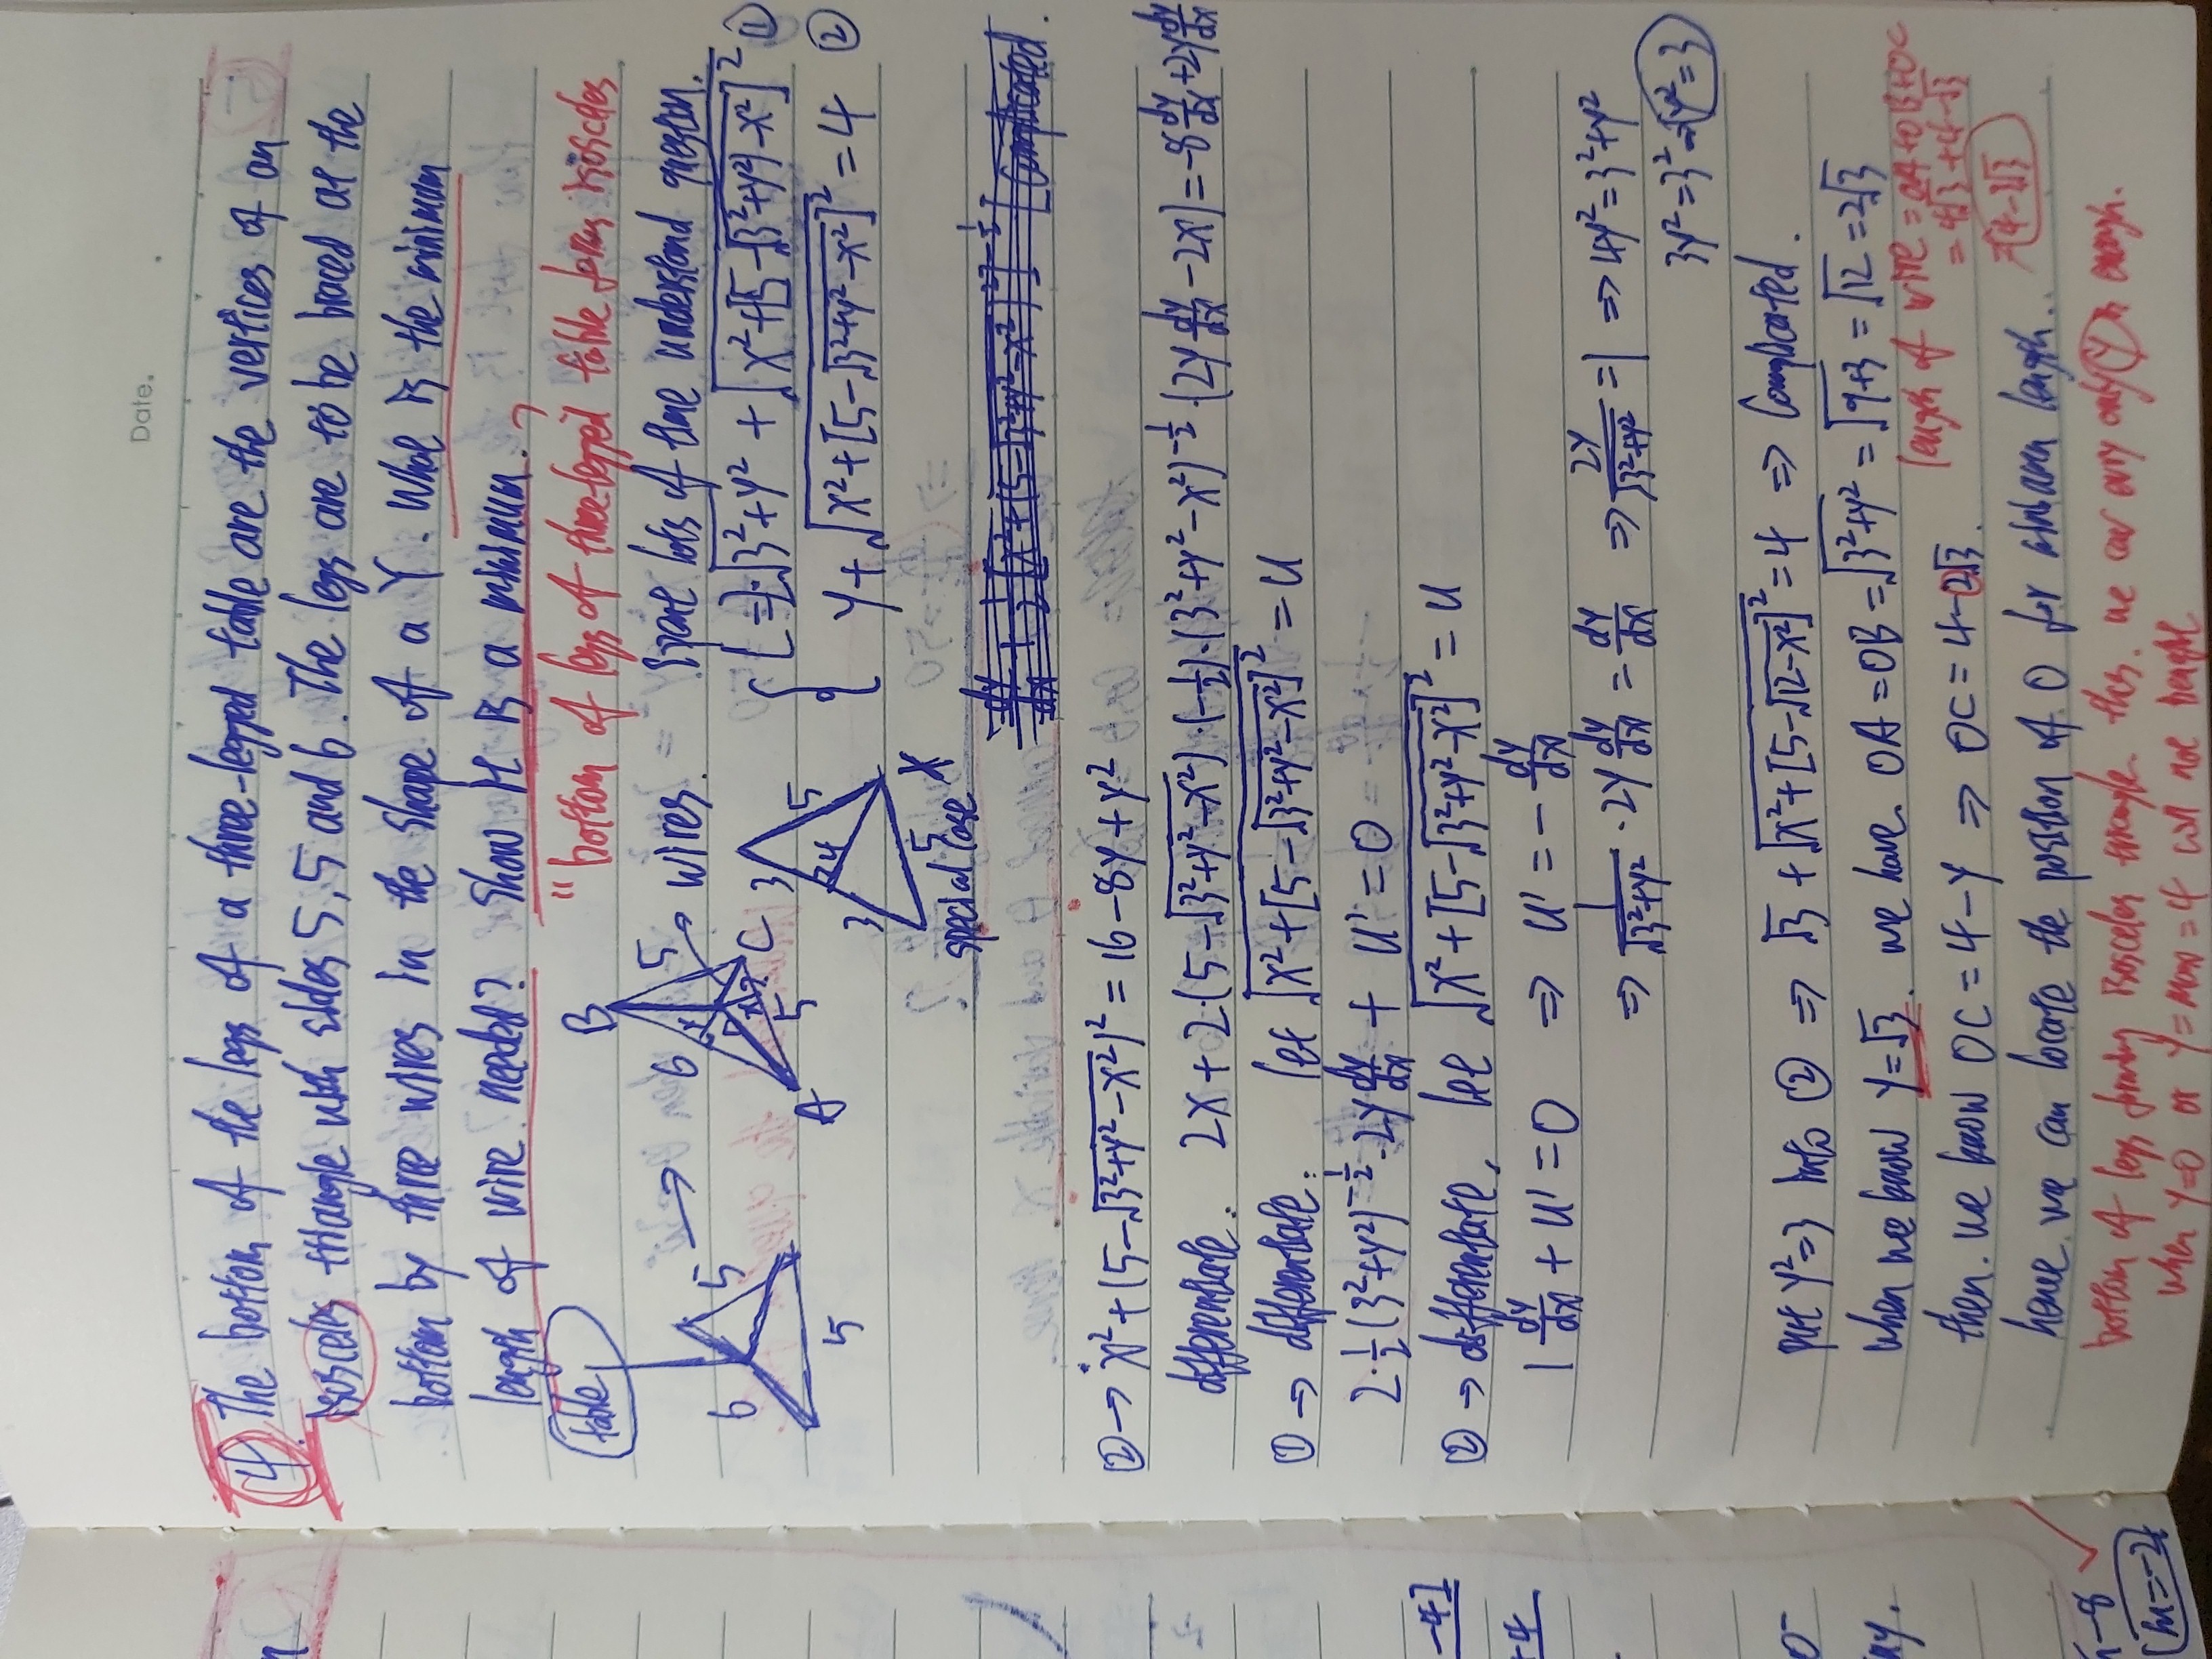 Date.
4. The bottom of the legs of a three-legged table are the vertices of an
isosceles triangle with sides 5, 5 and 6. The legs are to be braced at the
bottom by three wires in the shape of a Y. What is the minimum
length of wire needed? Show it is a minimum.
"bottom of legs of three-legged table forms isosceles
table
6
5
5
B
6
5
A
5
C
wires.
Spent lots of time understand question.
3
3
24
5
5
special case X
L = 2·√(3²+y²) + √(x²+[5-√(3²+y²)-x²]²) ①
y+√(x²+[5-√(3²+y²-x²)]²) = 4 ②
Complicated.
② → x²+(5-√(3²+y²-x²))² = 16-8y+y²
differentiate. 2x+2·(5-√(3²+y²-x²))·(-1/2)·(3²+y²-x²)^(-1/2)·(2y dy/dx-2x) = -8 dy/dx+2y dy/dx
① → differentiate. let √(x²+[5-√(3²+y²-x²)]²) = u
2·1/2(3²+y²)^(-1/2)·2y dy/dx + u' = 0
② → differentiate, let √(x²+[5-√(3²+y²-x²)]²) = u
1 dy/dx + u' = 0 ⇒ u' = - dy/dx
⇒ 1/√(3²+y²) · 2y dy/dx = dy/dx ⇒ 2y/√(3²+y²) = 1 ⇒ 4y² = 3²+y²
3y² = 3² ⇒ y² = 3
put y²=3 into ② ⇒ √3 + √(x²+[5-√(12-x²)]²) = 4 ⇒ Complicated.
when we know y=√3. we have. OA = OB = √(3²+y²) = √(9+3) = √12 = 2√3
length of wire = OA+OB+OC
= 4√3+4-√3
then. we know OC = 4-y ⇒ OC = 4-2√3.
= 4-3√3
hence we can locate the position of O for minimum length.
bottom of legs forming isosceles triangle. thus. we can only y is enough.
when y=0 or y=max=4 will not
-4]
+4
-8
m=-2